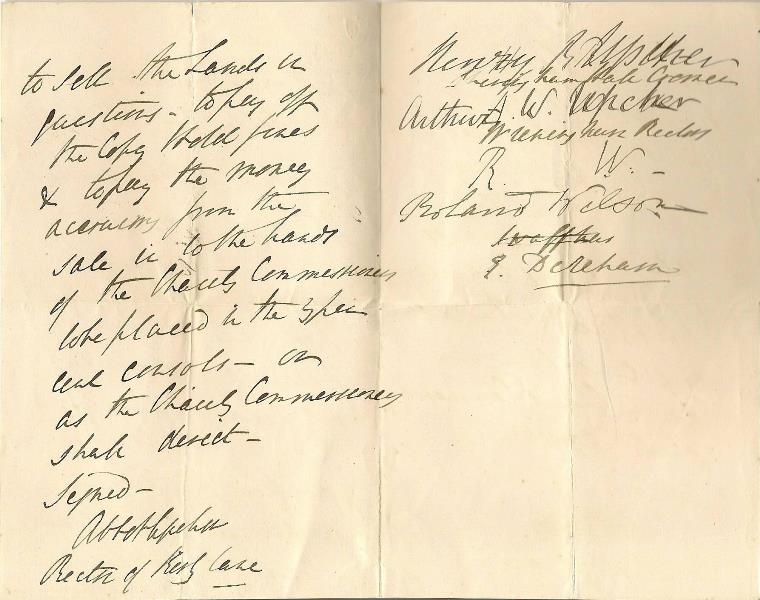 to sell the Lands in
question - to pay off
the Copy Hold fines
& to pay the money
accruing from the
sale in to the hands
of the Charity Commissioners
to be placed in the 3 per
cent consols - or
as the Charity Commissioners
shall direct -
Signed -
Abbot Upcher
Rector of Kirby Cane
Henry R Upcher
Arthur W. Upcher
Wreningham Rector
R. W. -
Roland Wilson
Swaffham
E. Dereham